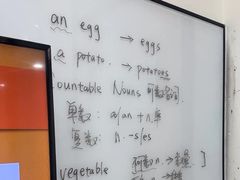 an egg → eggs
a potato. → potatoes
ountable Nouns 可数名词
单数: a/an + n.单
复数: n. -s/es
vegetable 可数n. →